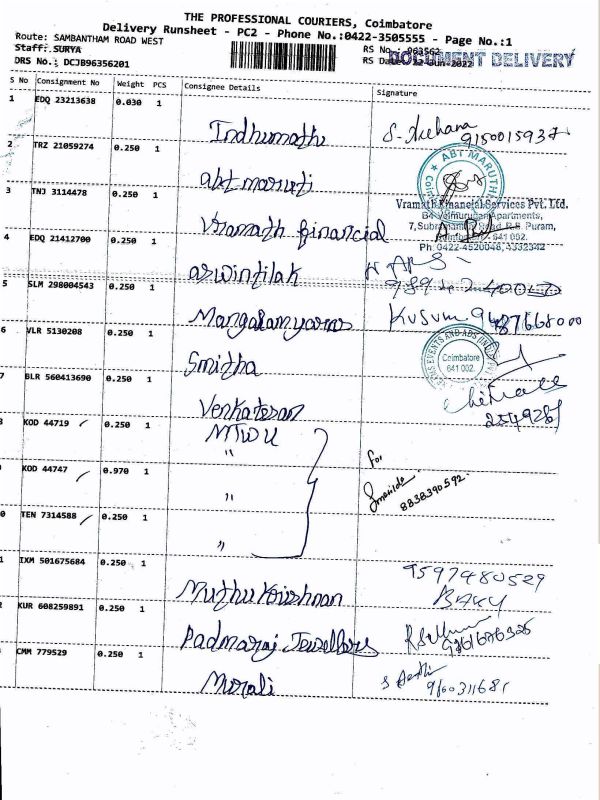 THE PROFESSIONAL COURIERS, Coimbatore
Delivery Runsheet - PC2 - Phone No.:0422-3505555 - Page No.:1
Route: SAMBANTHAM ROAD WEST
Staff: SURYA
RS No.: 963562
DRS No.: DCJB96356201
RS Date: 12-Jun-2022
DOCUMENT DELIVERY
S No Consignment No Weight PCS Consignee Details Signature
1 EDQ 23213638 0.030 1 Indhumathi 9150015937
2 TRZ 21059274 0.250 1 abt maruti
ABT MARUTHI
3 TNJ 3114478 0.250 1 Vramath financial
Vramath Financial Services Pvt. Ltd.
B4 Velmurugan Apartments,
7, Road, R.S. Puram,
641 002.
Ph: 0422-4520048,
4 EDQ 21412700 0.250 1 aswintilak
5 SLM 298004543 0.250 1 Mangalam Kusum
6 VLR 5130208 0.250 1 Smitha
EVENTS AND ADS
Coimbatore
641 002.
7 BLR 560413690 0.250 1 Venkatesan
8 KOD 44719 0.250 1 MTWU for
9 KOD 44747 0.970 1 " 8838390592
0 TEN 7314588 0.250 1 "
1 IXM 501675684 0.250 1 Muthu Krishnan 9597480529
2 KUR 608259891 0.250 1 Padmaraj Jewellers
CMM 779529 0.250 1 Murali 9600311681